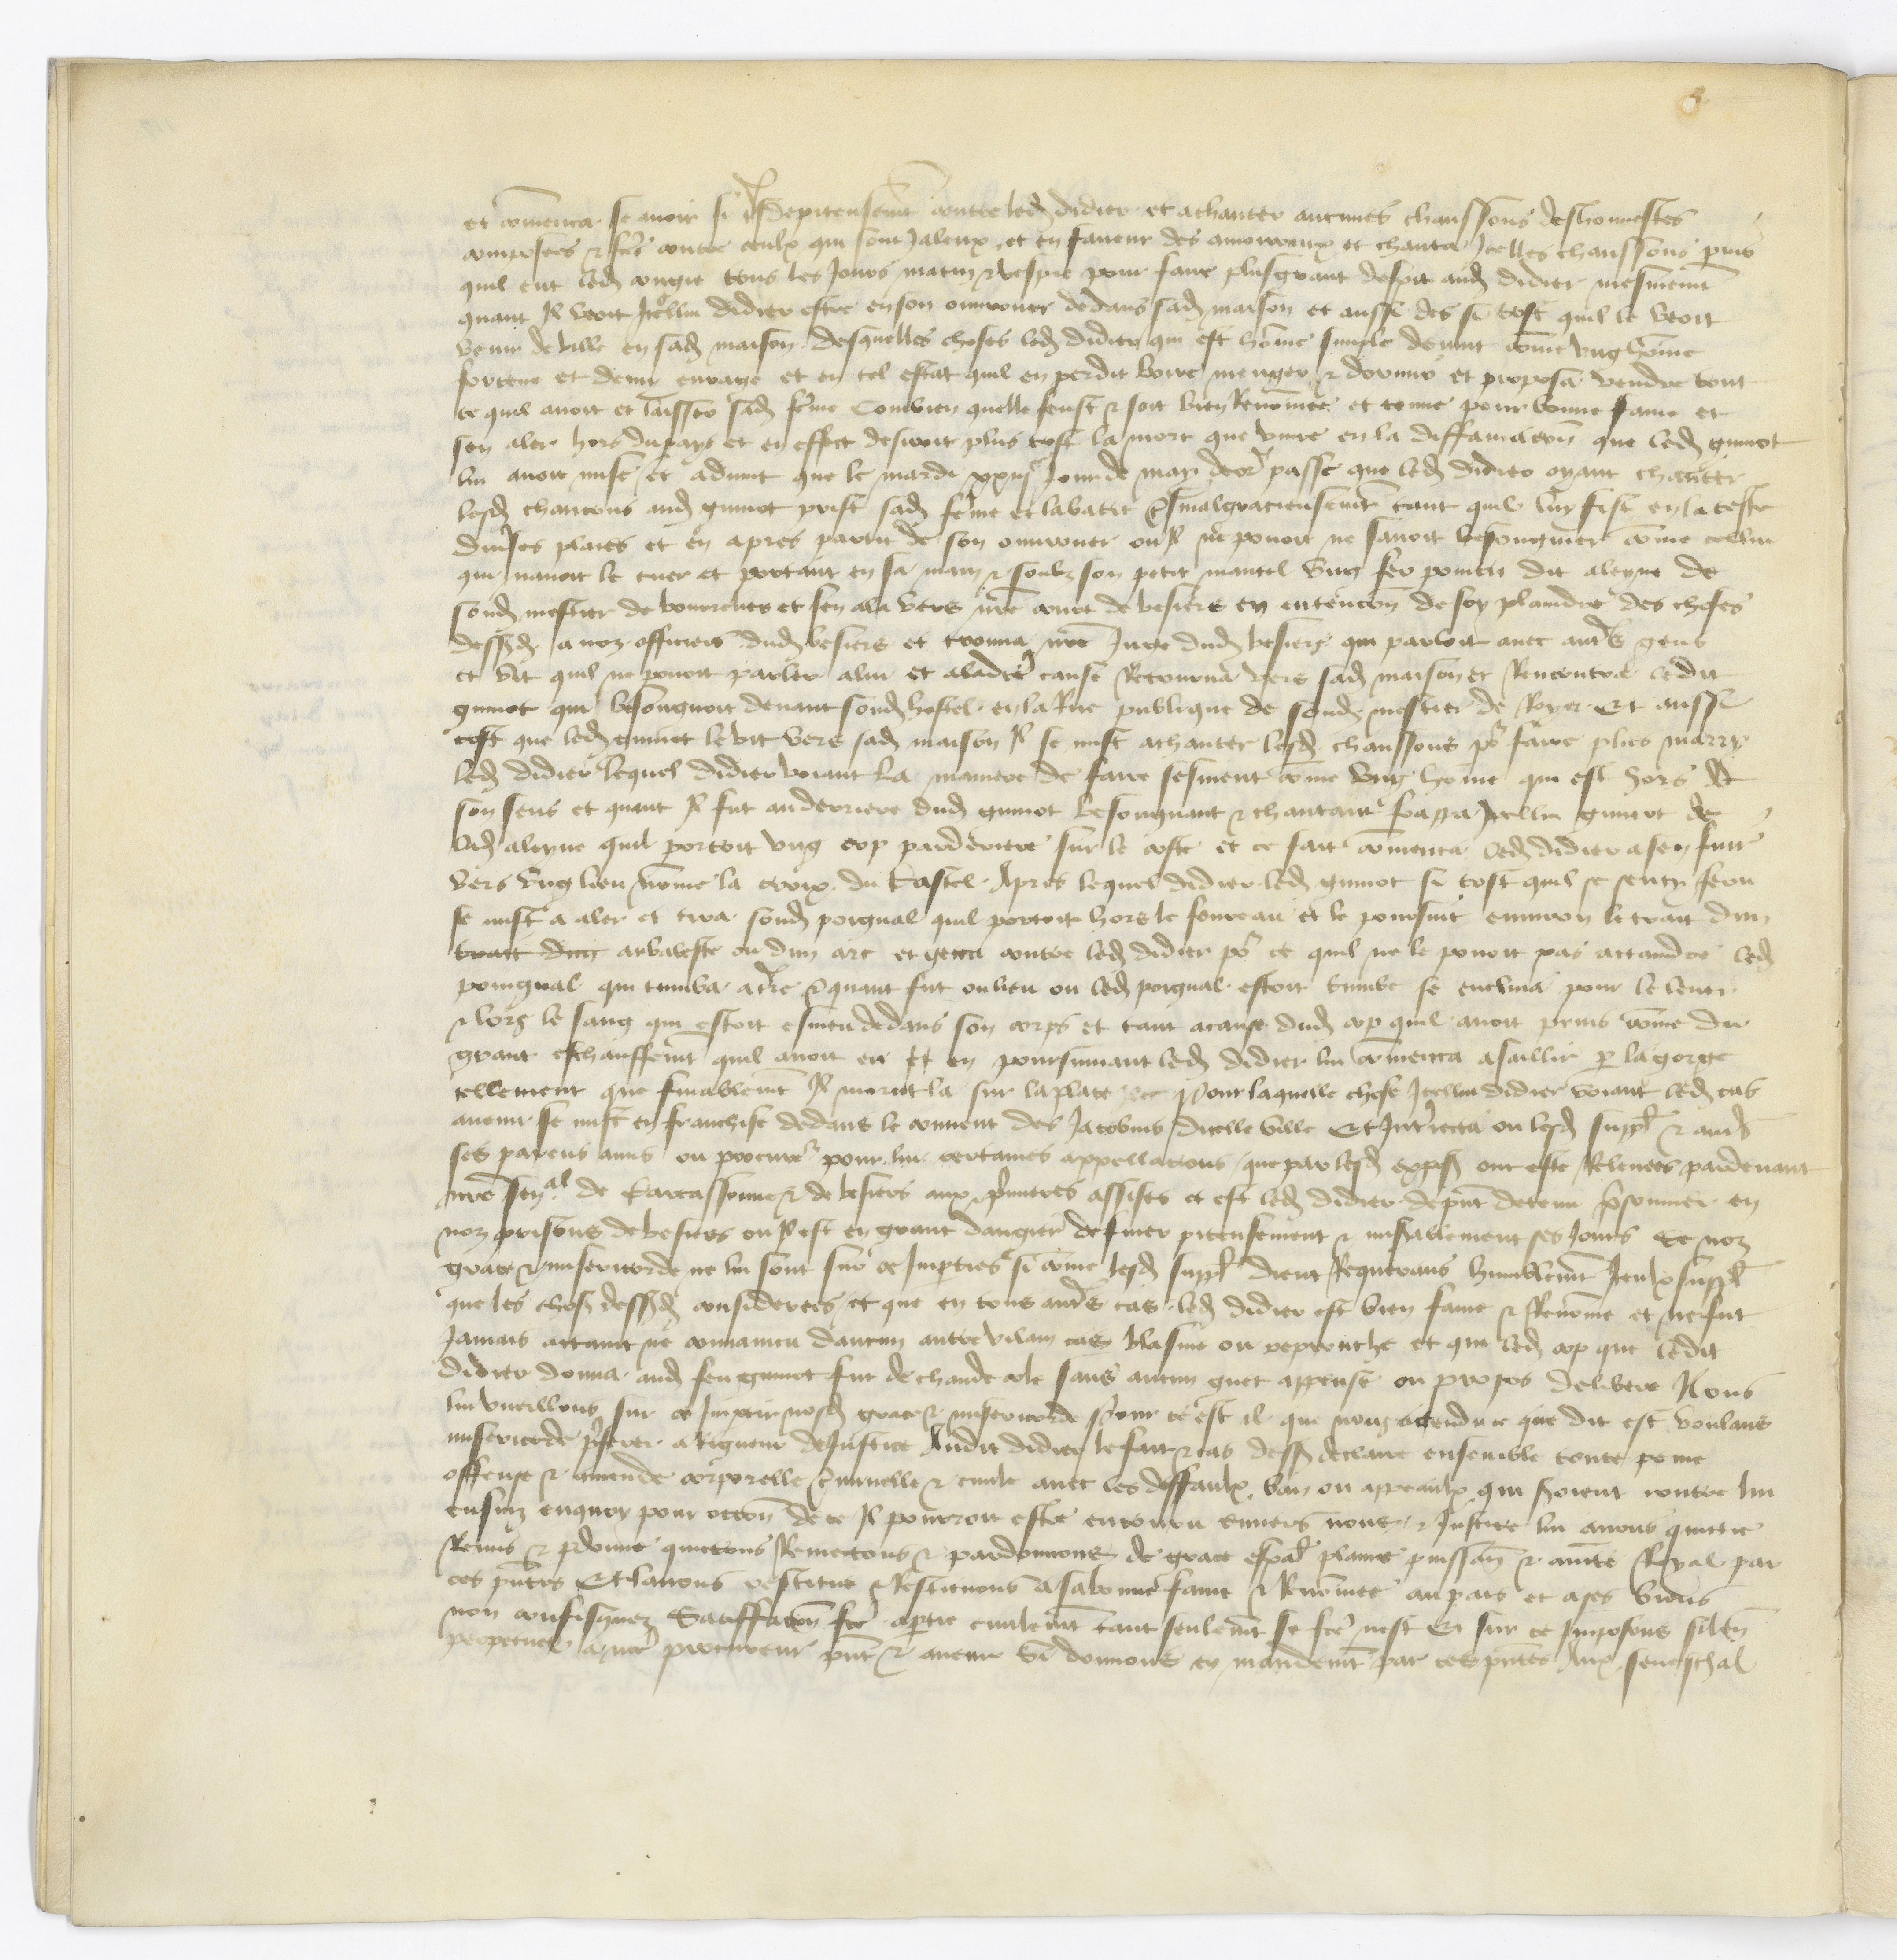 et com̄enca se avoir si despiteusem̄t contre led didier et achanter aucunes chanssons deshonnestes
composees & fc̄es contre ceulx qui sont Jaleux et en faveur des amoureux et chanta Icelles chanssons puis
quil eut led congie tous les Jours matin & vespre pour faire plusgrant despit aud didier mesmem̄t
quant Il veoit Icellui didier estre en son ouvrouer dedans sad maison et aussi des si tost quil le veoit
venir de ville en sad maison desquelles choses led didier qui est hom̄e simple devint com̄e ung hom̄e
forcene et demi enrage et en tel estat quil en perdit boire menger & dormir et proposa vendre tout
ce quil avoit et laisser sad fem̄e Combien quelle feust & soit bien Renom̄ee et tenue pour bonne fame et
sen aler hors du pays et en effect desiroit plus tost la mort que vivre en la diffamacōn que led guiot
lui avoit mise et advint que le mardi xxiije Jour de may derr̄ passe que led didier oyant chanter
lesd chancons aud guiot prist sad fem̄e et la batit tres malgracieusem̄t tant quil luy fist en la teste
div̄ses plaies et en apres partit de son ouvrouer ou Il ne povoit ne savoit besongnier com̄e cellui
qui navoit le cuer et portant en sa main & soubz son petit mantel ung fer pointu dit aleyne de
sond mestier de bourrelier et sen ala vers nr̄e court de besiers en entencōn de soy plaindre des choses
dessusd a noz officiers dud besiers et trouva nr̄e Juge dud besiers qui parloit avec autr̄s gens
et vit quil ne povoit parler alui et aladicte cause Retourna vers sad maison et Rencontra ledit
guiot qui besongnoit devant sond hostel en la Rue publique de sond mestier de Royer Et aussi
tost que led guiot le vit vers sad maison Il se mist achanter lesd chanssons pō faire plus marry
led didier lequel didier voiant la maniere de faire sesmeut com̄e ung hom̄e qui est hors de
son sens et quant Il fut au derriere dud guiot besongnant & chantant frappa Icellui guiot de
lad aleyne quil portoit ung cop par derriere sur le coste et ce fait com̄enca led didier a sen fuir
vers ung lieu nom̄e la croix du Castel Apres lequel didier led guiot si tost quil se senty feru
se mist a aler et tira sond poignal quil portoit hors le fourreau et le poursuit environ le trait dun
trait dun arbaleste ou dun arc et gecta contre led didier pō ce quil ne le povoit pas attandre led
poingnal qui tumba a tr̄re & quant fut ou lieu ou led poignal estoit tumbe se enclina pour le lever
& lors le sang qui estoit esmeu dedans son corps et tant acause dud cop quil avoit prins com̄e du
grant eschauffem̄t quil avoit eu et en poursuivant led didier lui com̄enca asaillir p̄ la gorge
tellement que finablem̄t Il morut la sur la place pour laquelle chose Icellui didier voiant led cas
avenu se mist en franchise dedans le couvent des Jacobins dicelle ville Et Int̄Jecta ou lesd suppl̄ & autr̄s
ses parens amis ou procur̄ pour lui certaines appellacions que par lesd exp̄s ont este Relevees pardevant
nr̄e senal de Carcassonne & de besiers aux p̄mieres assises et est led didier dep̄nt detenu p̄sonnier en
noz prisons de besiers ou Il est en grant dangier de finer piteusement & mis̄ablement ses Jours Se noz
grace & misericorde ne lui sont sur ce Impties si com̄e lesd suppl̄ dient Requerans humblem̄t Iceulx suppl̄
que les choses dessusd considerees et que en tous autr̄s cas led didier est bien fame & Renom̄e et ne fut
Jamais attaint ne convaincu daucun autre vilain cas blasme ou reprouche et que led cop que ledit
didier donna aud feu guiot fut de chaude cole sans aucun guet appense ou propos delibere Nous
lui vueillons sur ce Impartir nosd grace & misericorde Pour ce est il que nous actendu ce que dit est voulans
misericorde p̄ferer a Rigueur de Justice Audit didier le fait & cas dessus declaire ensemble toute peine
offense & amende corporelle cr̄iminelle & civile avec les deffaulx ban ou appeaulx qui seroient contre lui
ensuiz enquoy pour occōn de ce Il pourroit estre encouru envers nous & Justice lui avons quictie
Remis & p̄donne quictons Remectons & pardonnons de grace esp̄al plaine puissan̄ & auct̄e Royal par
ces p̄ntes Et lavons restitue & Restituons a sa bonne fame & Renom̄ee au pais et a ses biens
non confisquez Satisfacōn fc̄e aptie civilem̄t tant seulem̄t se fc̄e nest Et sur ce Imposons silen̄
perpetuel a nr̄e procureur p̄nt & avenir Si donnons en mandem̄t par ces p̄ntes Aux seneschal